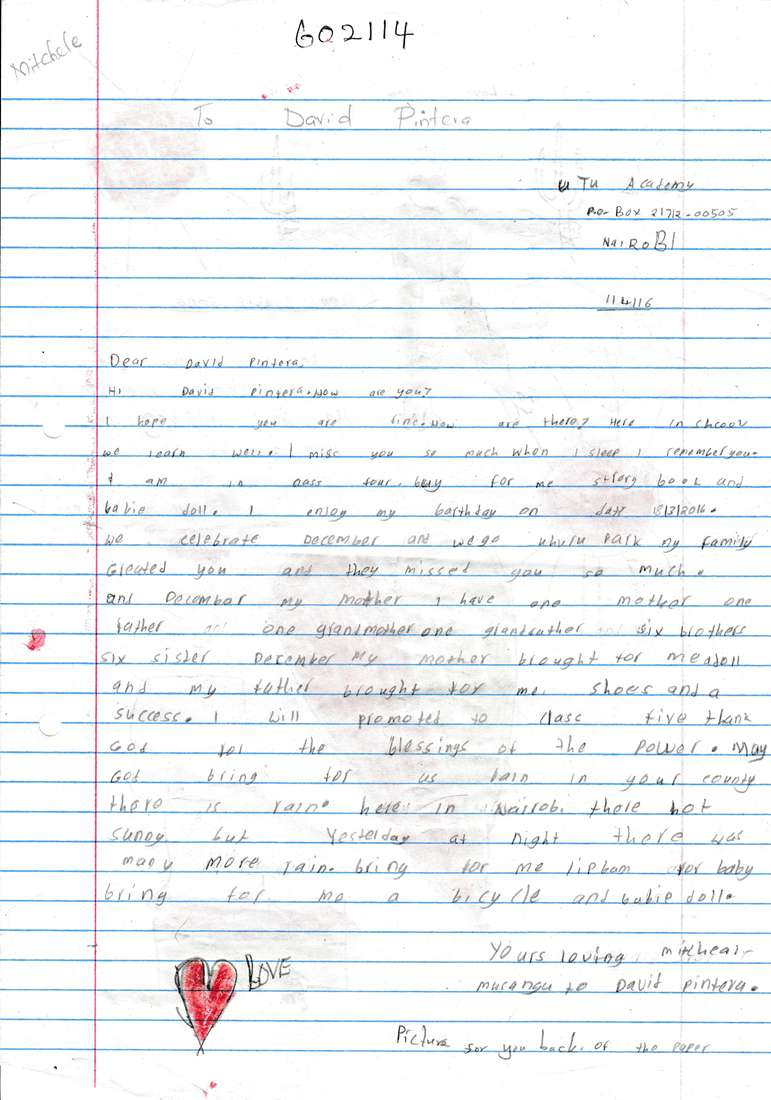 GO2114
Mitchele
To David Pintera
u Tu Academy
P.o Box 21712-00505
NaiRoBI
114116
Dear David Pintera,
Hi David Pintera. How are you?
I hope you are fine. How are there? Here in shcool
we learn well. I miss you so much when I sleep I remember you.
I am in class four. buy for me story book and
babie doll. I enjoy my barthday on dat 18/3/2016.
we celebrate December and we go uhuru Park my Family
Gleated you and they missed you so much.
and December my mother I have one mother one
father one grandmother one grandfather and six brothers
six sister December My mother brought for me a doll
and my father brought for me shoes and a
success. I will promoted to class five thank
God for the blessings of the Power. May
God bring for us rain in your county
there is rain. here in Nairobi there hot
sunny but Yesterday at night there was
many more rain. bring for me lipbam for baby
bring for me a bicycle and babie doll.
Yours loving mitcheal
murangu to David Pintera.
LOVE
Picture for you back of the paper